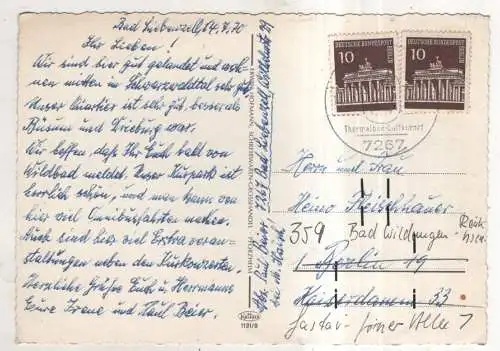 Bad Liebenzell, 4.7.70
Ihr Lieben!
Wir sind hier gut gelandet und woh-
nen mitten im Schwarzwaldtal sehr
Unser Quartier ist sehr gut, besser als
Büsum und Freiburg war.
Wir hoffen, daß Ihr Euch bald von
Wildbad meldet. Unser Kurpark ist
herrlich schön, und man kann von
hier viel Omnibusfahrten machen.
Auch sind hier viel Extra veran-
staltungen neben den Kurkonzerten.
Herzliche Grüße Euch u. Herrmanns
Eure Irene und Paul Beier.
Abs. Paul Beier, 7267 Bad Liebenzell,
bei
1191/9
DEUTSCHE BUNDESPOST
BERLIN
10
DEUTSCHE BUNDESPOST
BERLIN
10
7267
Herrn und Frau
Heino Fleischhauer
359 Bad Wildungen-
1 Berlin 19
Kaiserdamm 33
Gustav-
Allee 7